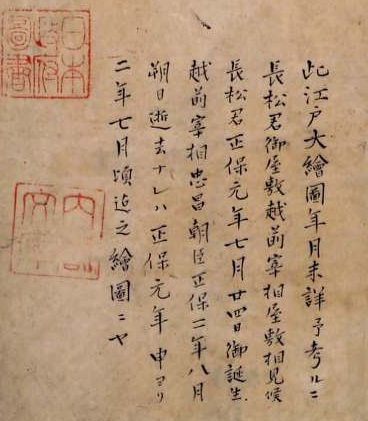 此江戸大繪圖年月未詳予考ルニ
長松君御屋敷越前宰相屋敷相見候
長松君正保元年七月廿四日御誕生
越前宰相忠昌朝臣正保二年八月
朔日逝去ナレハ正保元年申ヨリ
二年七月頃迄之繪圖ニヤ
日本
政府
圖書
内閣
文庫